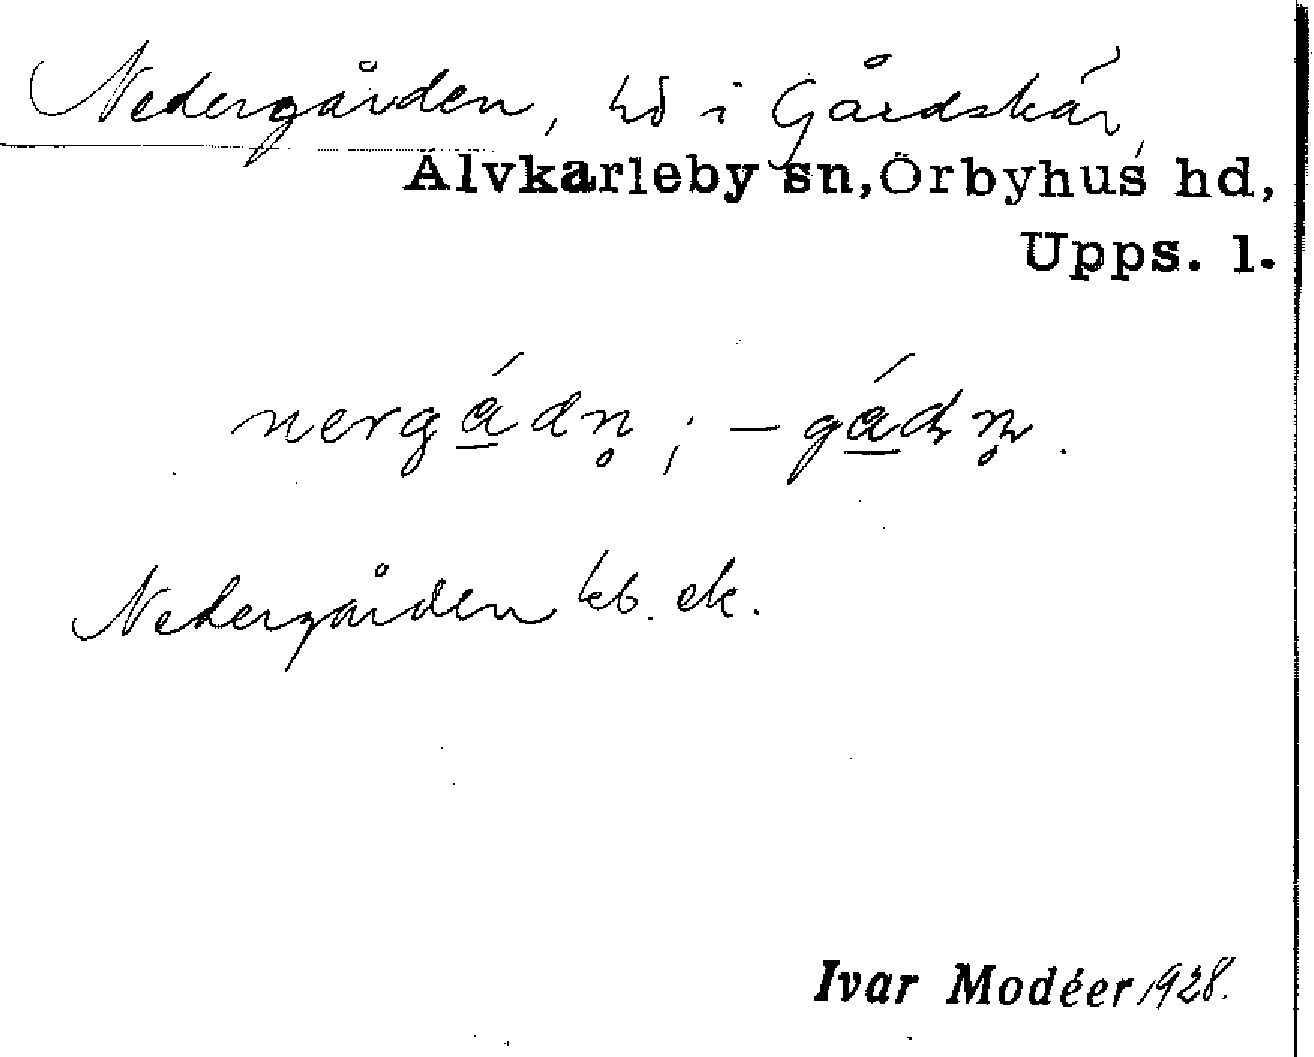 Nedergården, hd i Gårdskär,
Älvkarleby sn, Örbyhus hd,
Upps. l.
nergådn̥ ; – gådn̥ .
Nedergården kb. ek.
Ivar Modéer 1928.